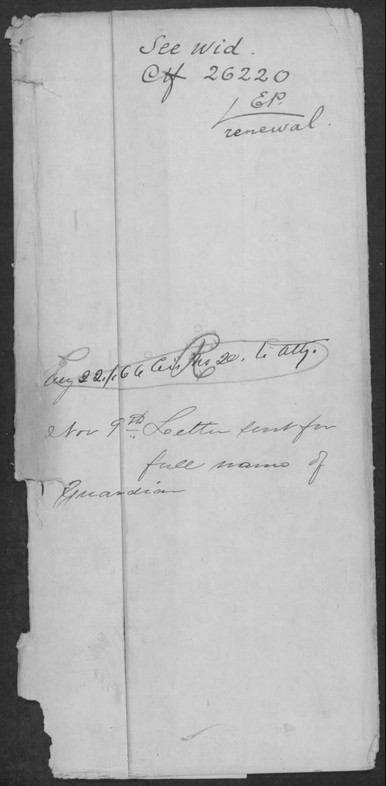 See wid.
Ctf 26220
EP.
renewal.
Aug 22./66 Cir No 20. to Atty.
R
Nov 9th Letter sent for
full name of
Guardian